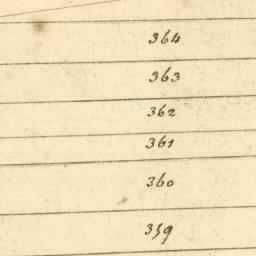 364
363
362
361
360
359